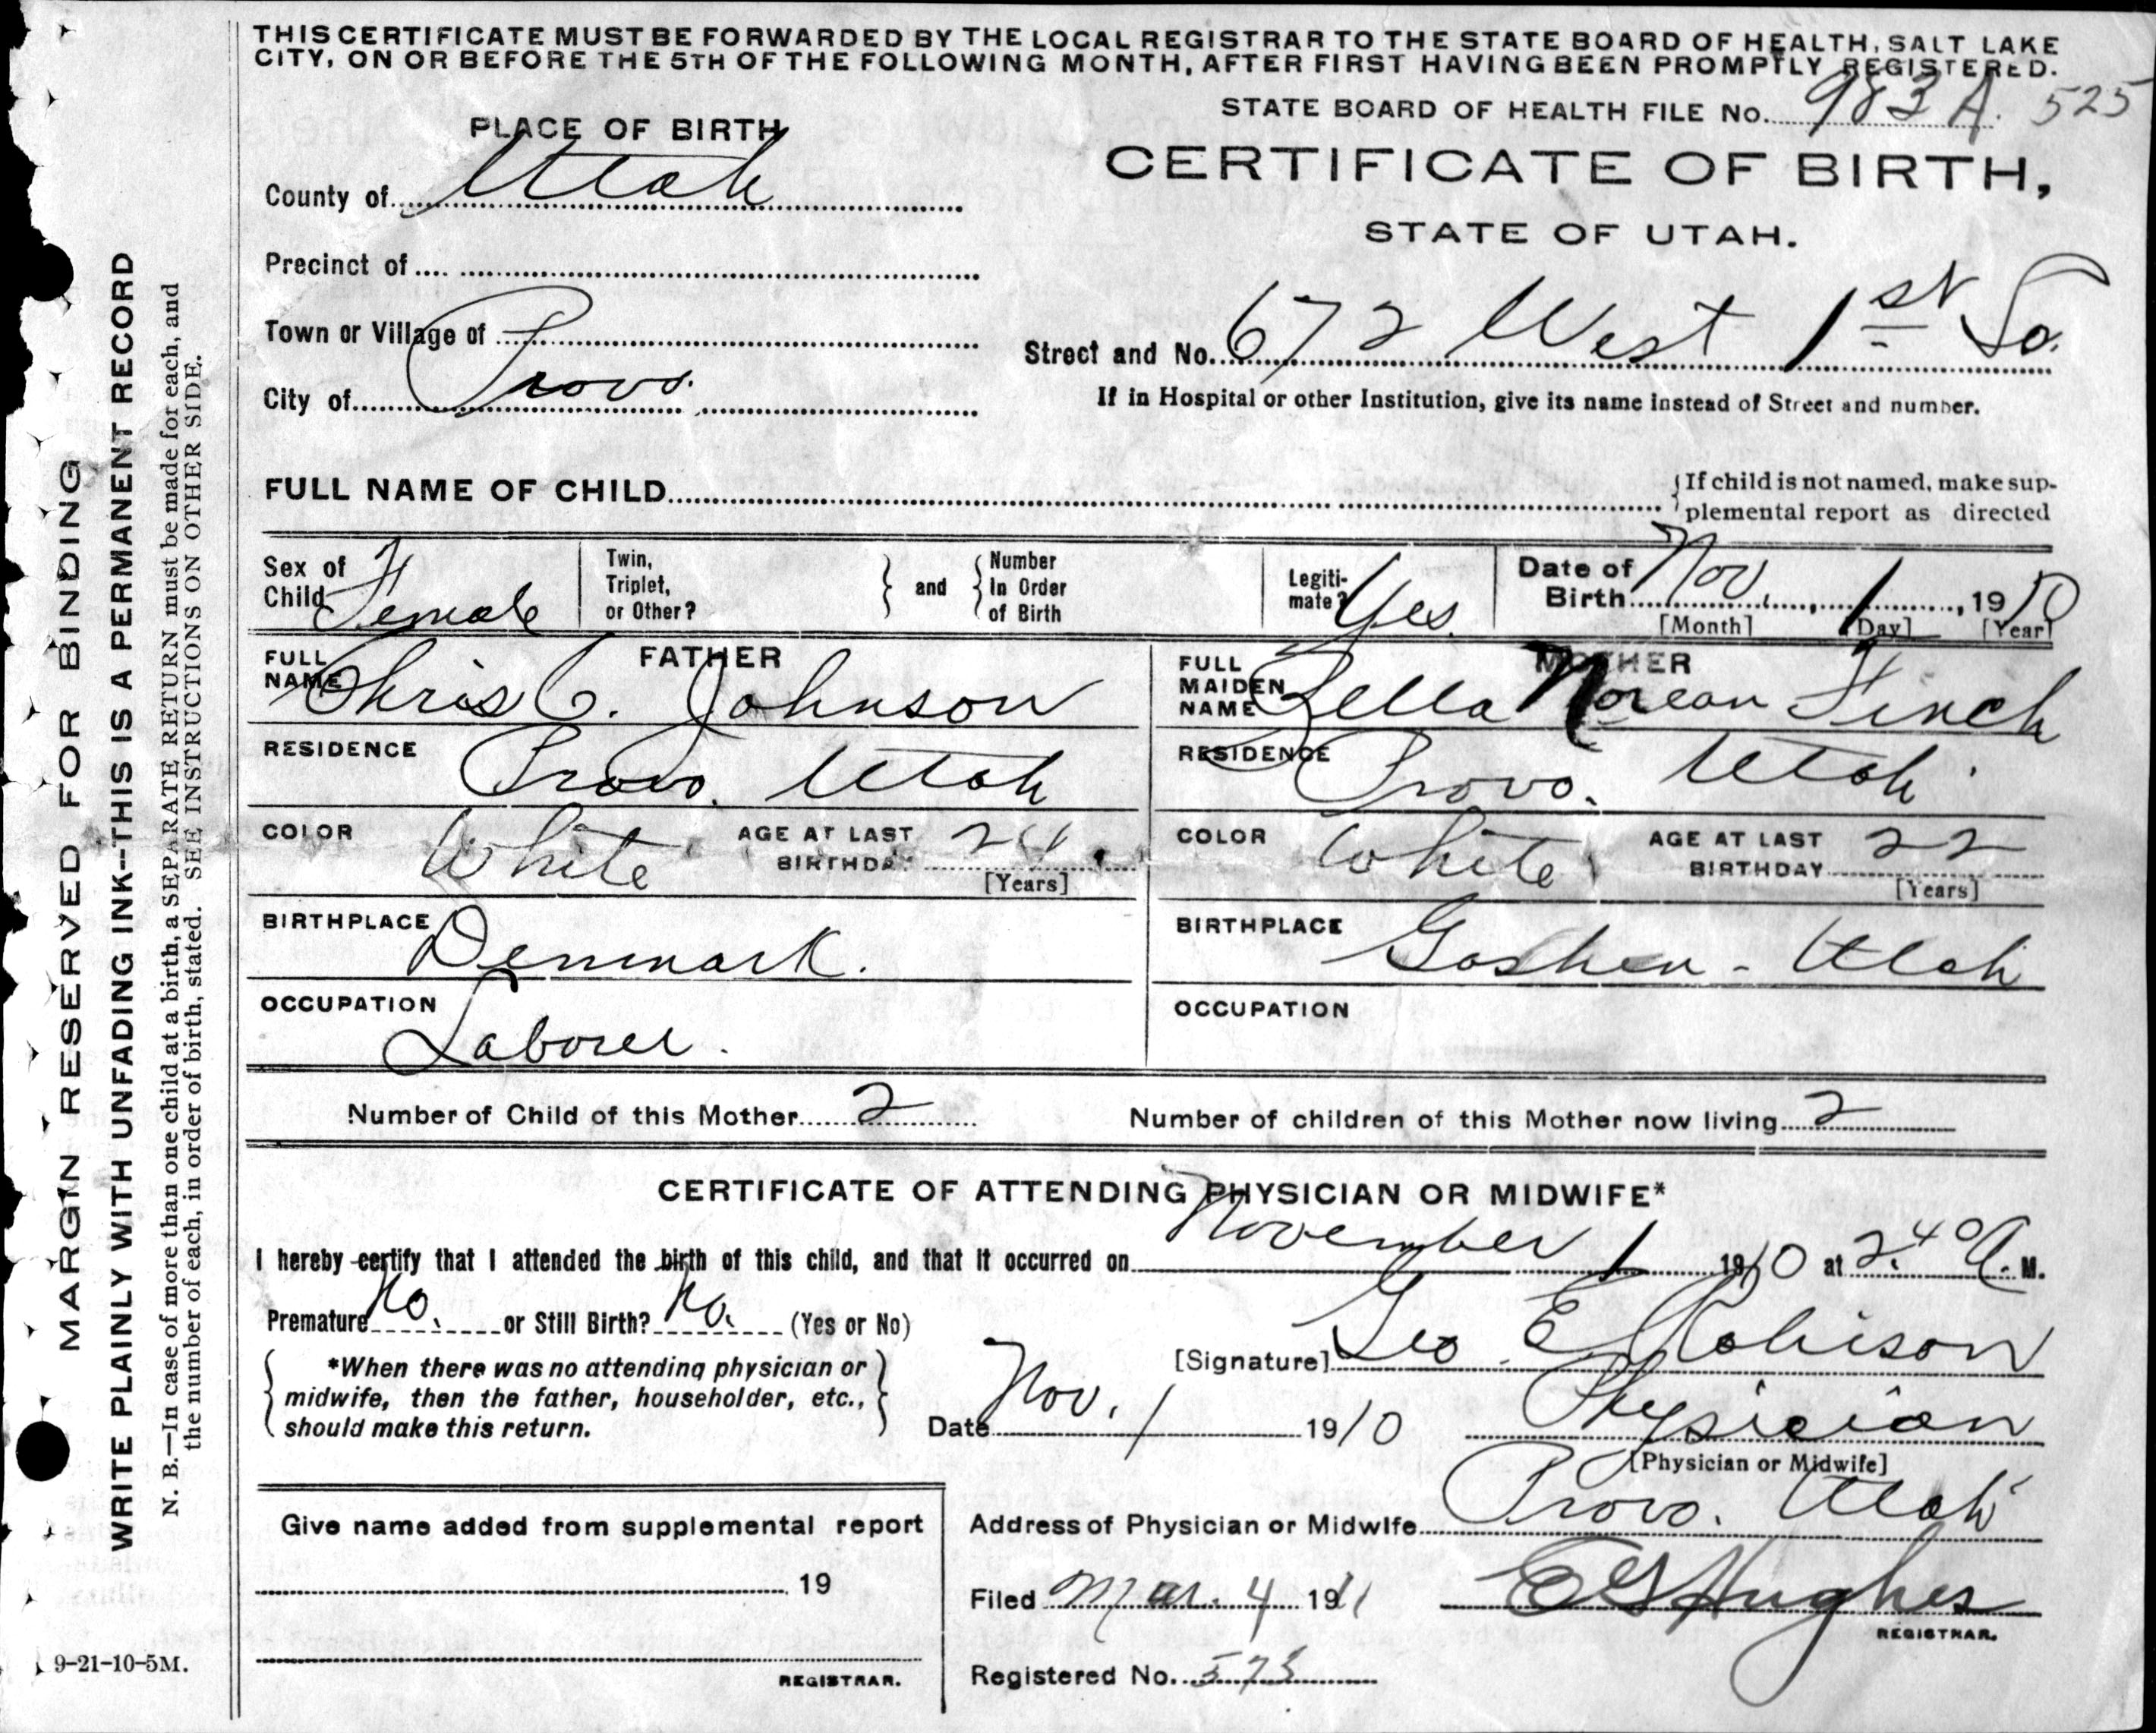 THIS CERTIFICATE MUST BE FORWARDED BY THE LOCAL REGISTRAR TO THE STATE BOARD OF HEALTH, SALT LAKE
CITY, ON OR BEFORE THE 5TH OF THE FOLLOWING MONTH, AFTER FIRST HAVING BEEN PROMPTLY REGISTERED.
STATE BOARD OF HEALTH FILE No. 983 A. 525
PLACE OF BIRTH
CERTIFICATE OF BIRTH,
STATE OF UTAH.
County of Utah
Precinct of
Town or Village of
Street and No. 672 West 1st So.
City of Provo.
If in Hospital or other Institution, give its name instead of Street and number.
FULL NAME OF CHILD
If child is not named, make sup-
plemental report as directed
Sex of Child Female
Twin, Triplet, or Other? and Number in Order of Birth
Legiti-mate? Yes.
Date of Birth Nov. 1, 1910
[Month] [Day] [Year]
FATHER
FULL NAME Chris C. Johnson
MOTHER
FULL MAIDEN NAME Zella Norean Finch
RESIDENCE Provo. Utah
RESIDENCE Provo. Utah
COLOR White AGE AT LAST BIRTHDAY [Years]
COLOR White AGE AT LAST BIRTHDAY 22 [Years]
BIRTHPLACE Denmark.
BIRTHPLACE Goshen - Utah
OCCUPATION Laborer.
OCCUPATION
Number of Child of this Mother 2
Number of children of this Mother now living 2
CERTIFICATE OF ATTENDING PHYSICIAN OR MIDWIFE*
I hereby certify that I attended the birth of this child, and that it occurred on November 1 1910 at 2.40 A. M.
Premature No. or Still Birth? No. (Yes or No)
[Signature] Geo E Robison
*When there was no attending physician or
midwife, then the father, householder, etc.,
should make this return.
Date Nov. 1 1910
Physician
[Physician or Midwife]
Address of Physician or Midwife Provo. Utah
Give name added from supplemental report
19
REGISTRAR.
Filed Mar. 4 1911
Hughes
REGISTRAR.
Registered No. 573
MARGIN RESERVED FOR BINDING
WRITE PLAINLY WITH UNFADING INK--THIS IS A PERMANENT RECORD
N. B.—In case of more than one child at a birth, a SEPARATE RETURN must be made for each, and
the number of each, in order of birth, stated. SEE INSTRUCTIONS ON OTHER SIDE.
9-21-10-5M.